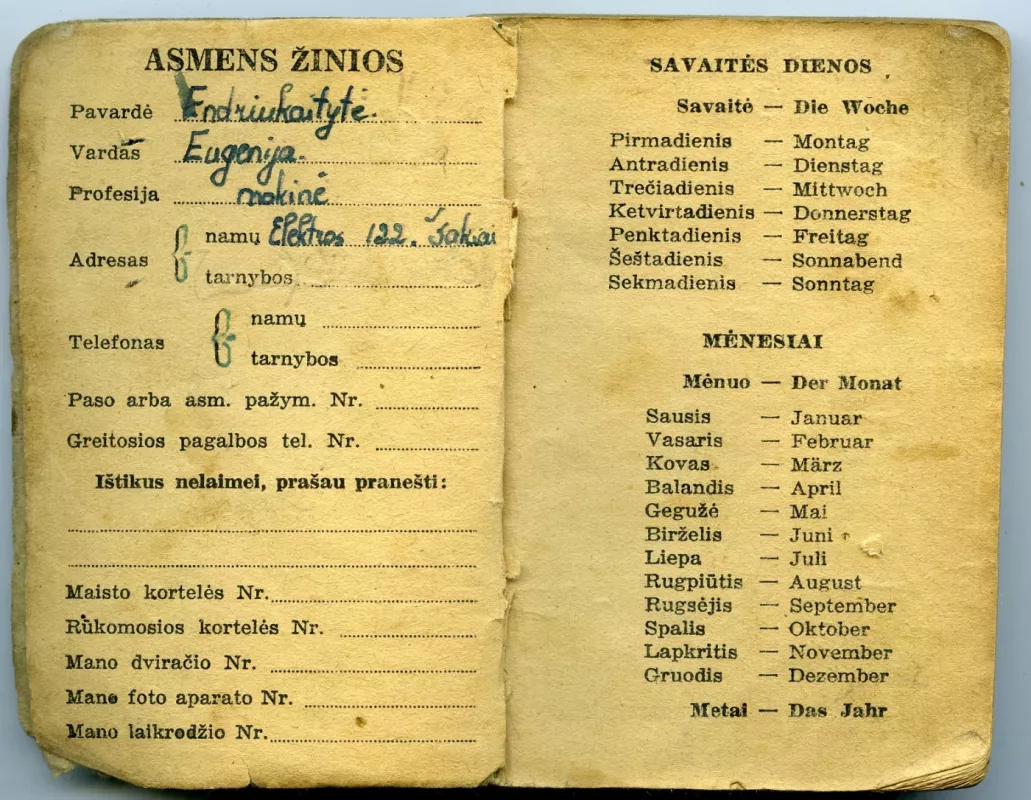 ASMENS ŽINIOS
Pavardė Endriukaitytė.
Vardas Eugenija.
Profesija mokinė
Adresas
namų Elektros 122. Šakiai
tarnybos
Telefonas
namų
tarnybos
Paso arba asm. pažym. Nr.
Greitosios pagalbos tel. Nr.
Ištikus nelaimei, prašau pranešti:
Maisto kortelės Nr.
Rūkomosios kortelės Nr.
Mano dviračio Nr.
Mano foto aparato Nr.
Mano laikrodžio Nr.
SAVAITĖS DIENOS
Savaitė — Die Woche
Pirmadienis — Montag
Antradienis — Dienstag
Trečiadienis — Mittwoch
Ketvirtadienis — Donnerstag
Penktadienis — Freitag
Šeštadienis — Sonnabend
Sekmadienis — Sonntag
MĖNESIAI
Mėnuo — Der Monat
Sausis — Januar
Vasaris — Februar
Kovas — März
Balandis — April
Gegužė — Mai
Birželis — Juni
Liepa — Juli
Rugpiūtis — August
Rugsėjis — September
Spalis — Oktober
Lapkritis — November
Gruodis — Dezember
Metai — Das Jahr